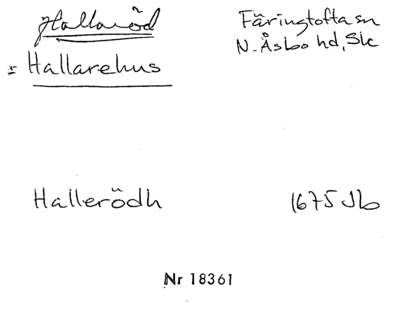 Hallaröd
Färingtofta sn
N. Åsbo hd, Sk
= Hallarehus
Hallerödh 1675 Jb
Nr 18361